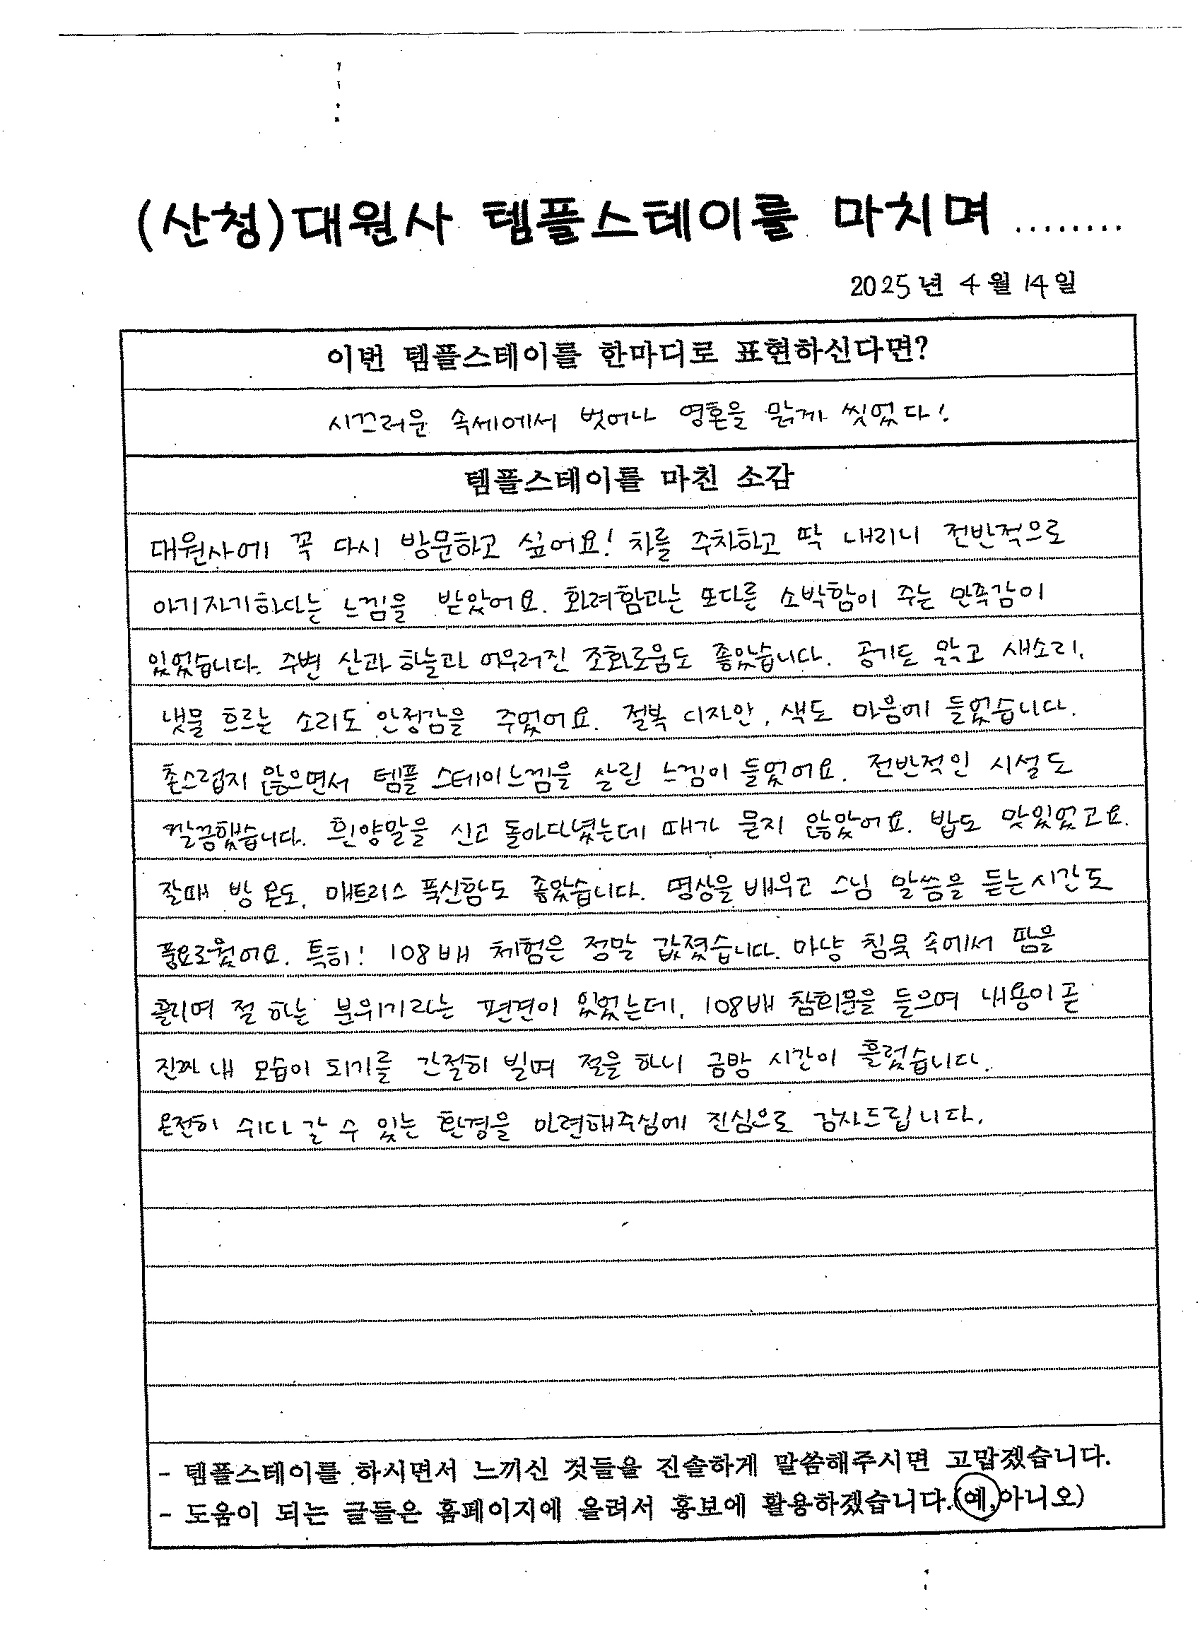 (산청)대원사 템플스테이를 마치며 ........
2025년 4월 14일
이번 템플스테이를 한마디로 표현하신다면?
시끄러운 속세에서 벗어나 영혼을 맑게 씻었다!
템플스테이를 마친 소감
대원사에 꼭 다시 방문하고 싶어요! 차를 주차하고 딱 내리니 전반적으로
아기자기하다는 느낌을 받았어요. 화려함과는 또다른 소박함이 주는 만족감이
있었습니다. 주변 산과 하늘과 어우러진 조화로움도 좋았습니다. 공기도 맑고 새소리,
냇물 흐르는 소리도 안정감을 주었어요. 절복 디자인, 색도 마음에 들었습니다.
촌스럽지 않으면서 템플 스테이느낌을 살린 느낌이 들었어요. 전반적인 시설도
깔끔했습니다. 흰양말을 신고 돌아다녔는데 때가 묻지 않았어요. 밥도 맛있었고요.
잘때 방 온도, 매트리스 폭신함도 좋았습니다. 명상을 배우고 스님 말씀을 듣는시간도
풍요로웠어요. 특히! 108배 체험은 정말 값졌습니다. 마냥 침묵 속에서 땀을
흘리며 절 하는 분위기라는 편견이 있었는데, 108배 참회문을 들으며 내용이 곧
진짜 내 모습이 되기를 간절히 빌며 절을 하니 금방 시간이 흘렀습니다.
온전히 쉬다 갈 수 있는 환경을 마련해주심에 진심으로 감사드립니다.
- 템플스테이를 하시면서 느끼신 것들을 진솔하게 말씀해주시면 고맙겠습니다.
- 도움이 되는 글들은 홈페이지에 올려서 홍보에 활용하겠습니다.(예,아니오)